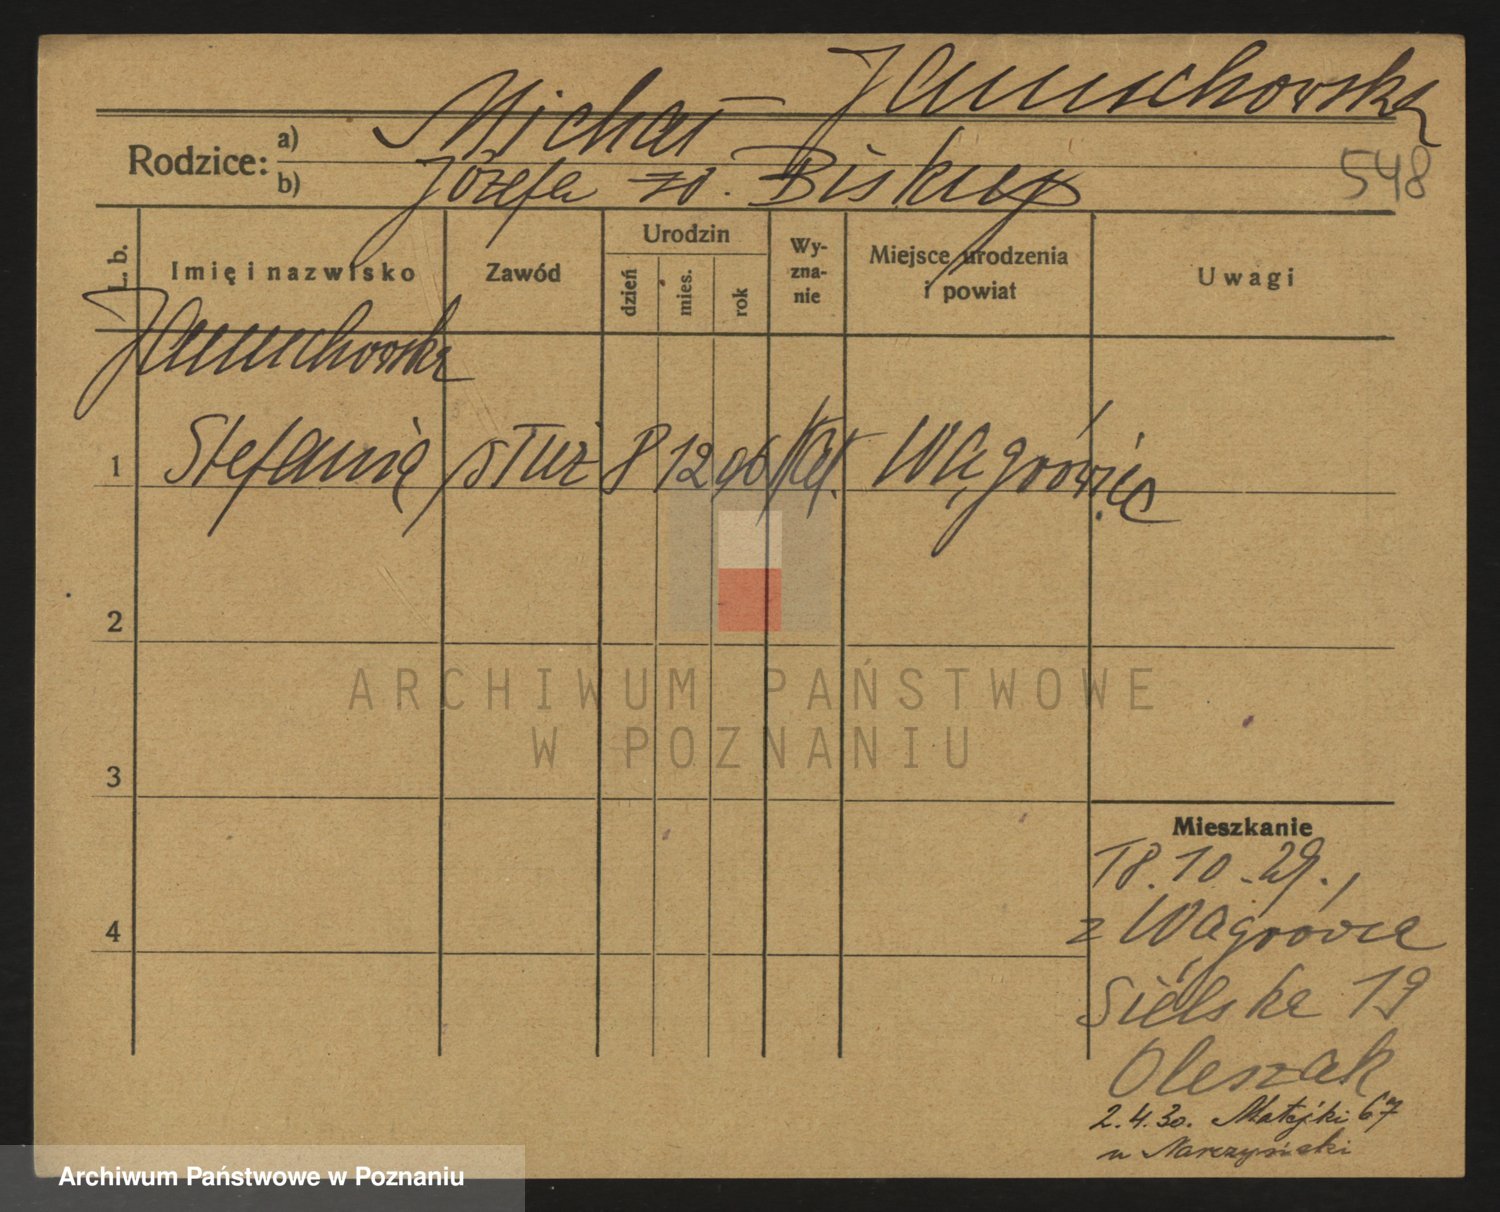 Januchowska
Rodzice: a) Michał
b) Józefa zd. Biskup
548
L. b.
Imię i nazwisko
Zawód
Urodzin
dzień
mies.
rok
Wy-
zna-
nie
Miejsce urodzenia
i powiat
Uwagi
Januchowska
1 Stefania służ 8 12 06 kat. Wągrówiec
2
3
4
ARCHIWUM PAŃSTWOWE
W POZNANIU
Mieszkanie
18.10.29.,
z Wągrówca
Sielska 19
Oleszak
2.4.30. Matejki 67
u Narczyński
Archiwum Państwowe w Poznaniu